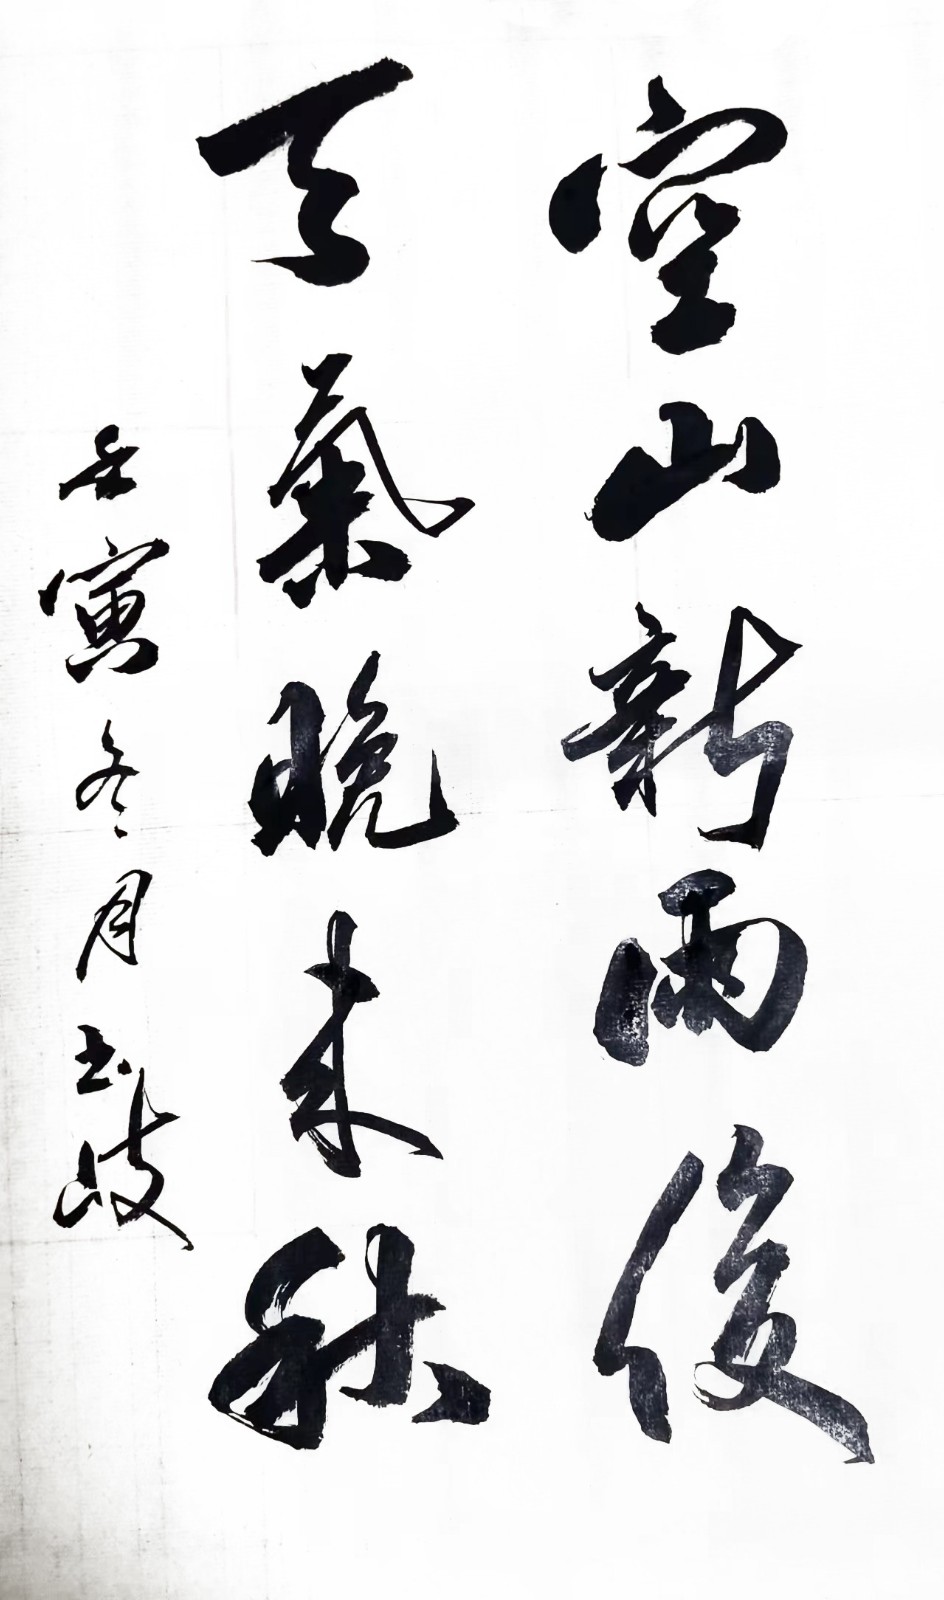 空山新雨後
天氣晚来秋
壬寅冬月玉岐